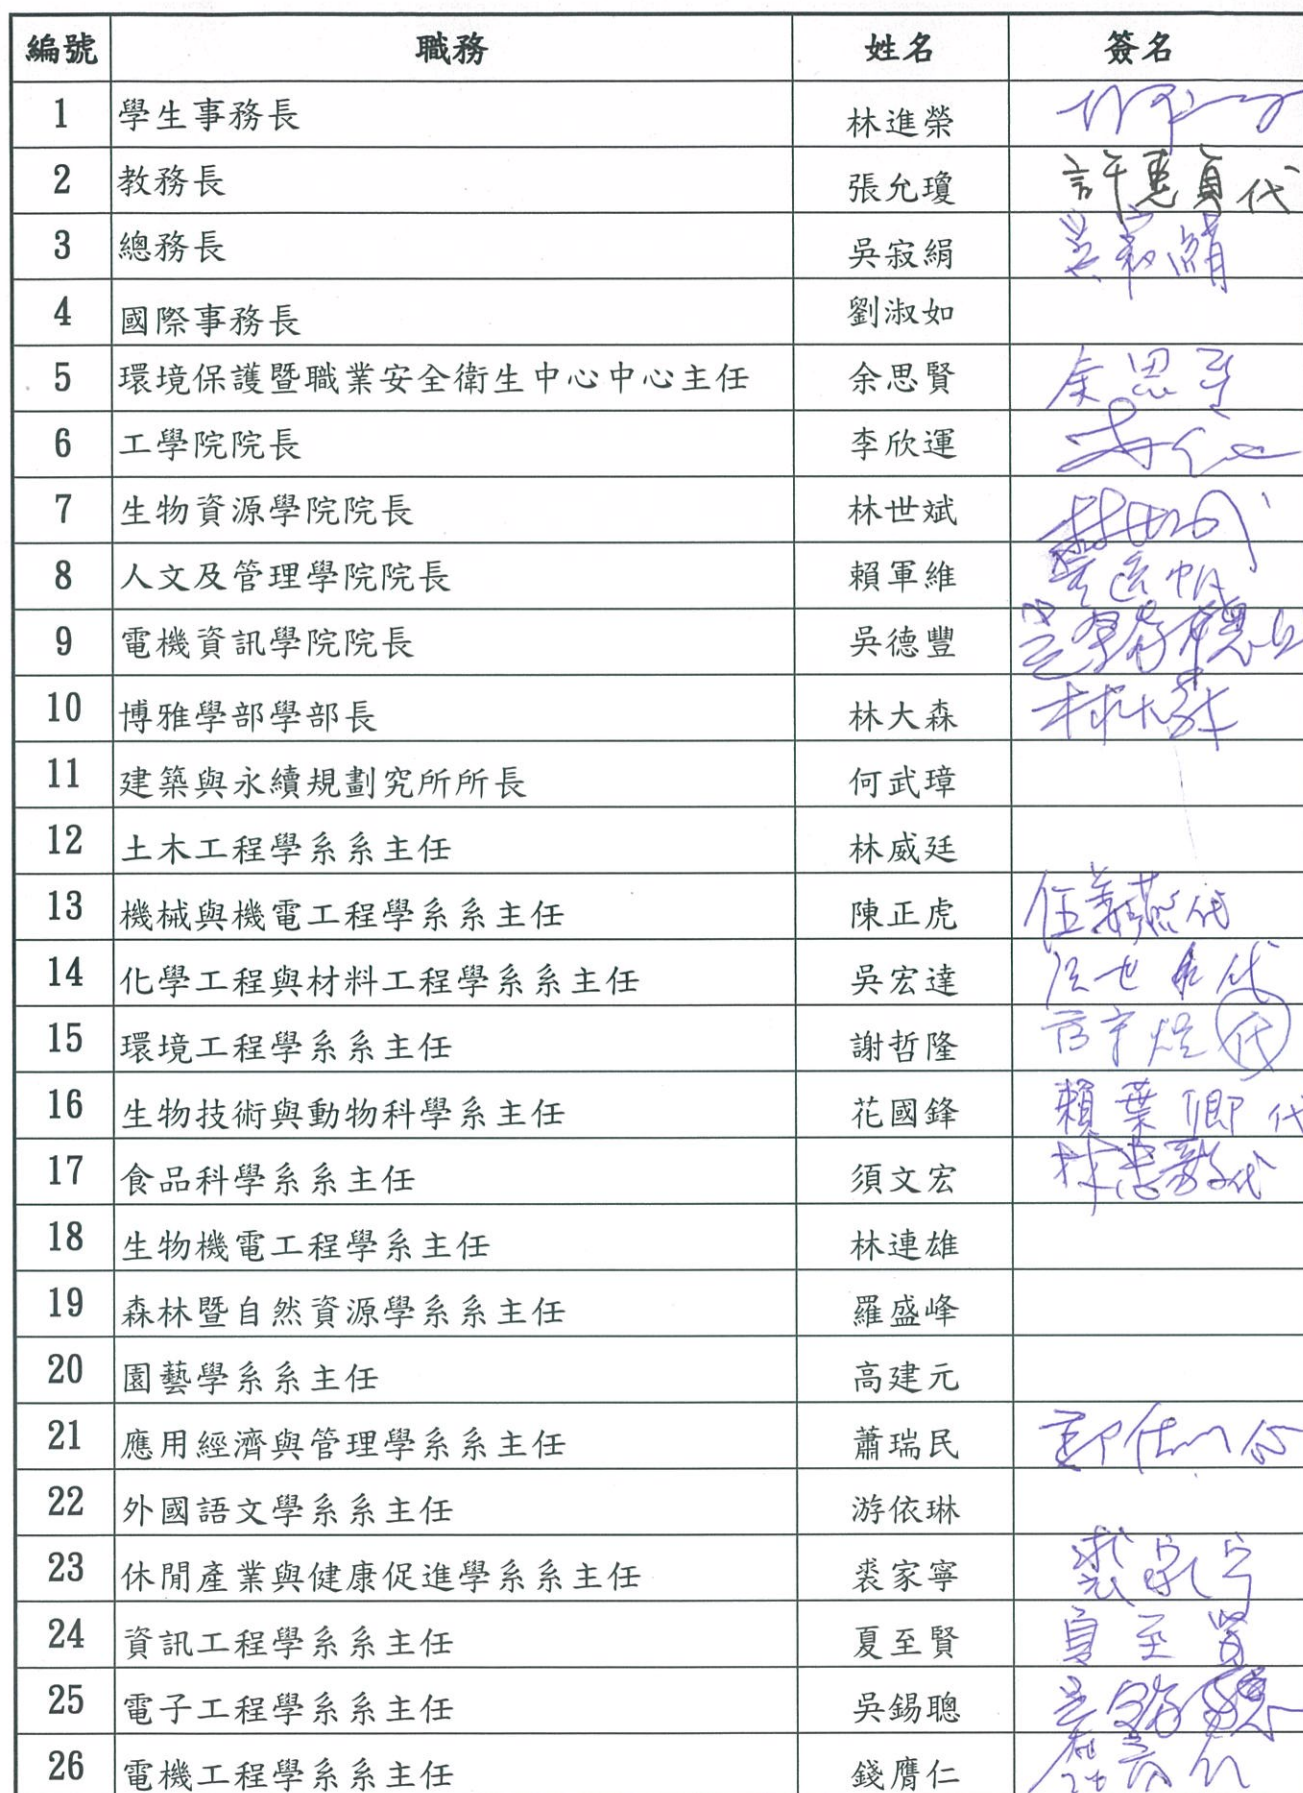 編號 職務 姓名 簽名
1 學生事務長 林進榮
2 教務長 張允瓊 許惠貞代
3 總務長 吳寂絹 吳寂絹
4 國際事務長 劉淑如
5 環境保護暨職業安全衛生中心中心主任 余思賢 余思賢
6 工學院院長 李欣運
7 生物資源學院院長 林世斌 林世斌
8 人文及管理學院院長 賴軍維
9 電機資訊學院院長 吳德豐
10 博雅學部學部長 林大森 林大森
11 建築與永續規劃究所所長 何武璋
12 土木工程學系系主任 林威廷
13 機械與機電工程學系系主任 陳正虎
14 化學工程與材料工程學系系主任 吳宏達
15 環境工程學系系主任 謝哲隆
16 生物技術與動物科學系主任 花國鋒 賴葉卿代
17 食品科學系系主任 須文宏 林忠毅代
18 生物機電工程學系主任 林連雄
19 森林暨自然資源學系系主任 羅盛峰
20 園藝學系系主任 高建元
21 應用經濟與管理學系系主任 蕭瑞民
22 外國語文學系系主任 游依琳
23 休閒產業與健康促進學系系主任 裘家寧 裘家寧
24 資訊工程學系系主任 夏至賢 夏至賢
25 電子工程學系系主任 吳錫聰 吳錫聰
26 電機工程學系系主任 錢膺仁